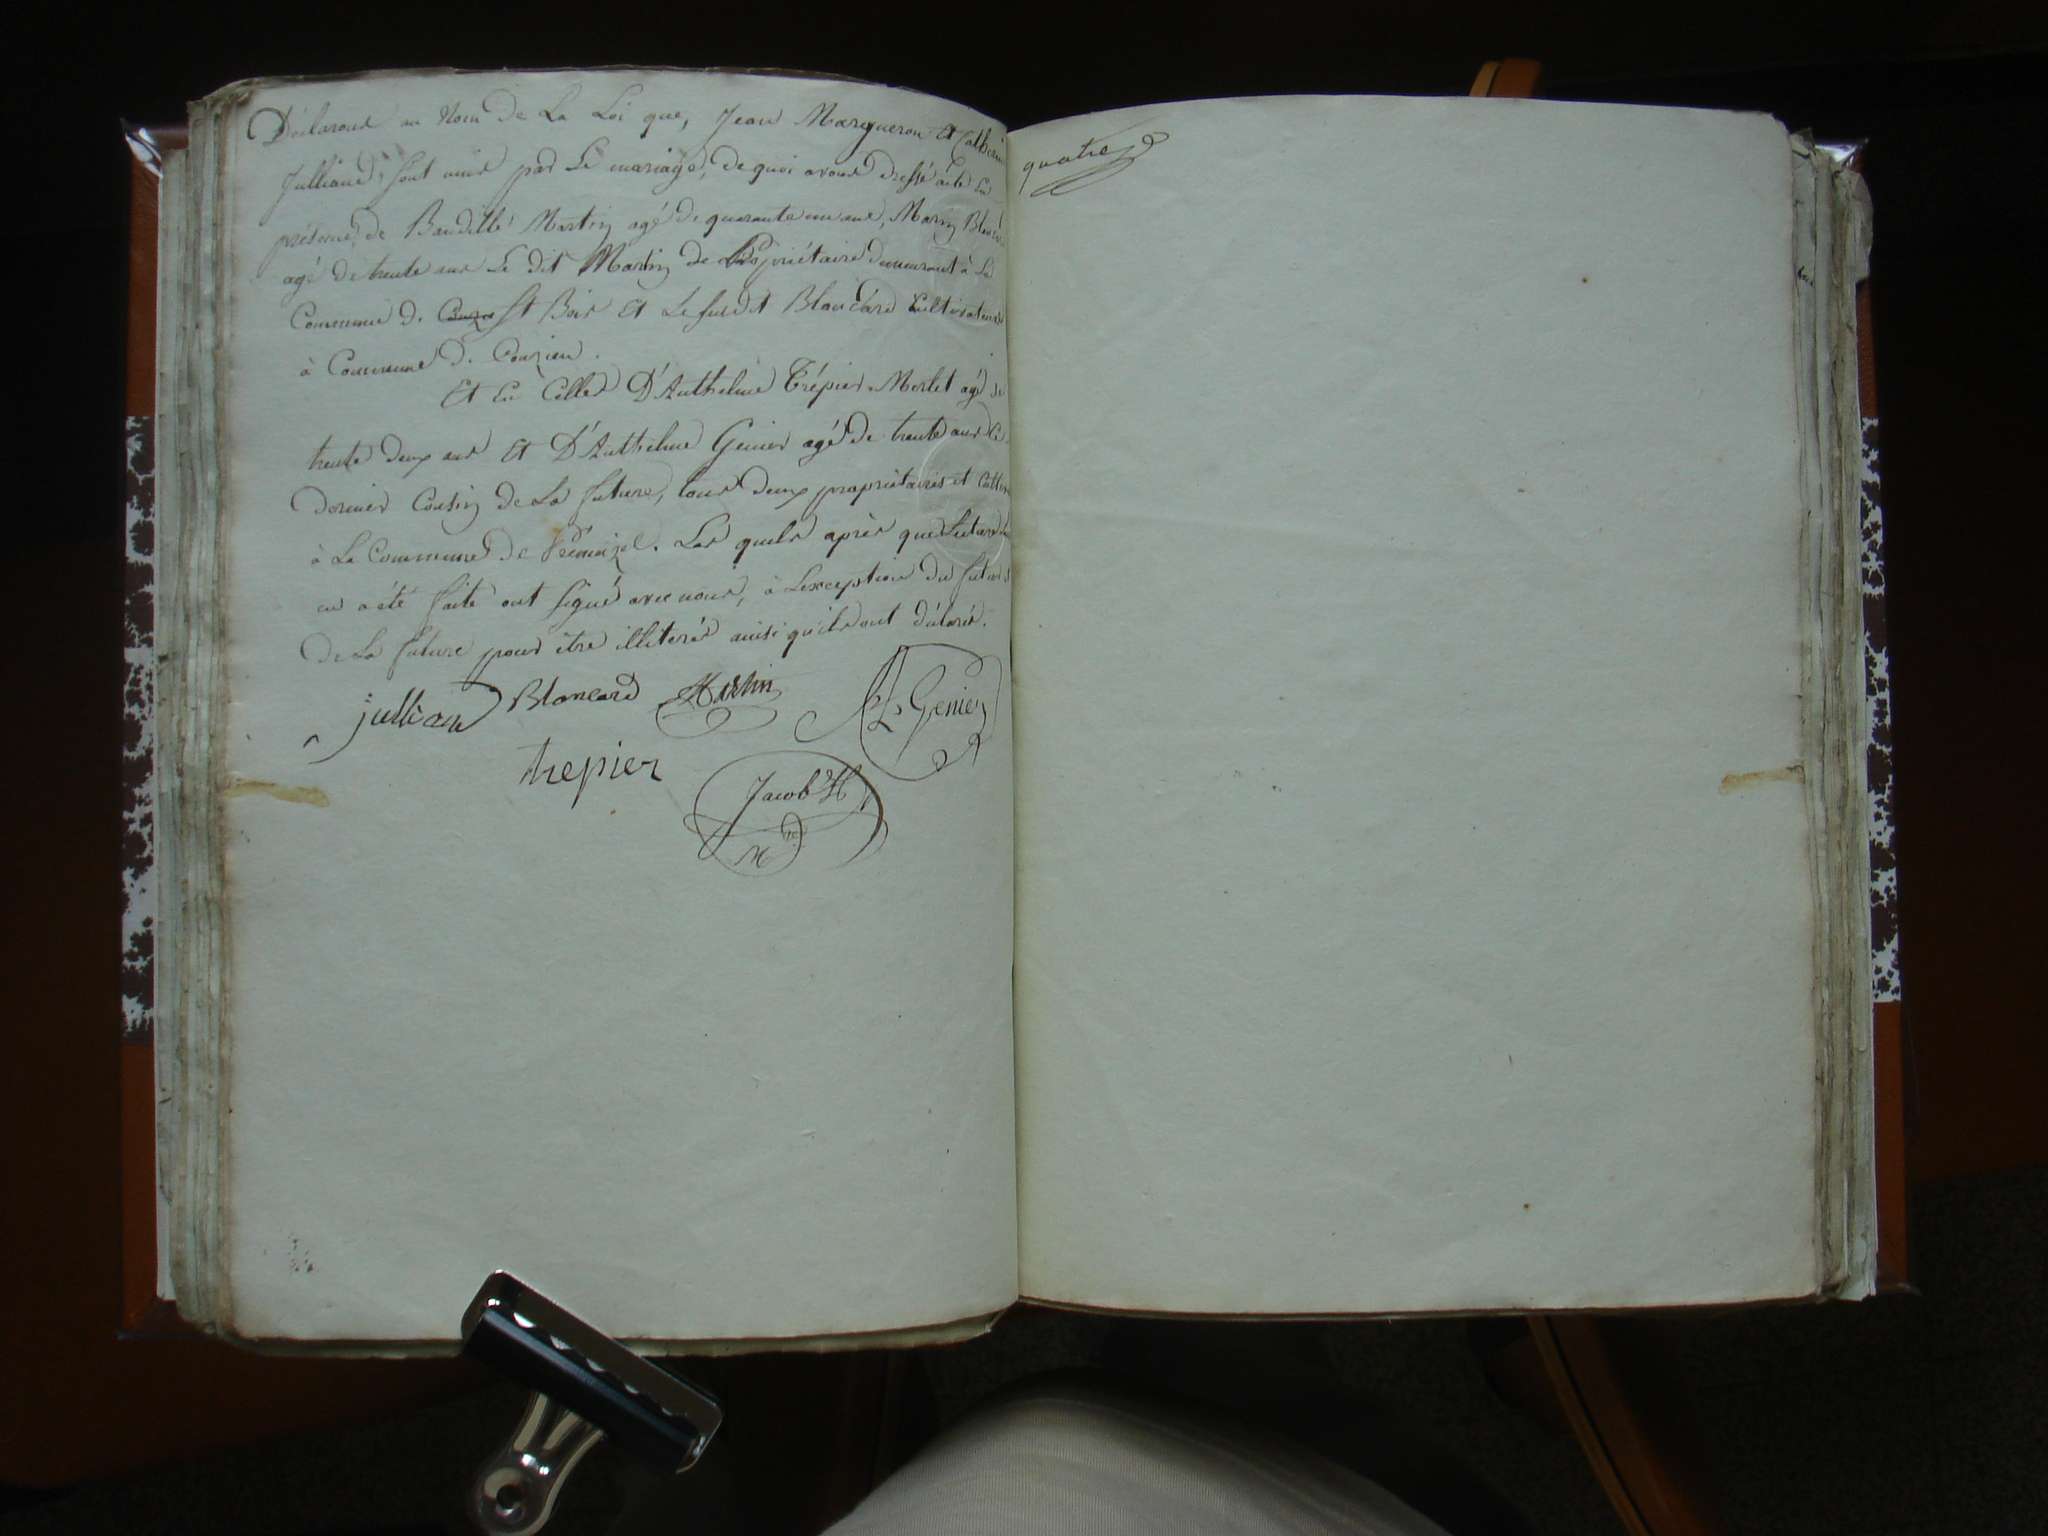 Déclarons au Nom de La Loi que, Jean Margueron et Catherine
Julliand, sont unis par Le mariage, de quoi avons dressé acte En
présence, de Baudille Martin agé de quarante un ans, Marin Blancard
agé de trente ans Le dit Martin de Propriétaire demeurant à La
Commune de St Bois Et Le susdit Blancard Cultivateur
à Commune de Conzieu.
Et En Celles D'Anthelme Trépier-Morlet agé de
trente deux ans Et D'Anthelme Genier agé de trente ans Ce
dernier Cousin de La future, tous deux propriétaires et Cultiv
à La Commune de Prémeyzel. Les quels après que Lecture Leur
en a été faite ont signé avec nous, à L'exception du futur &
de La future pour être illiterés ainsi qu'ils ont déclarés.
jullian Blancard Martin
Genier
trepier
Jacob
quatre